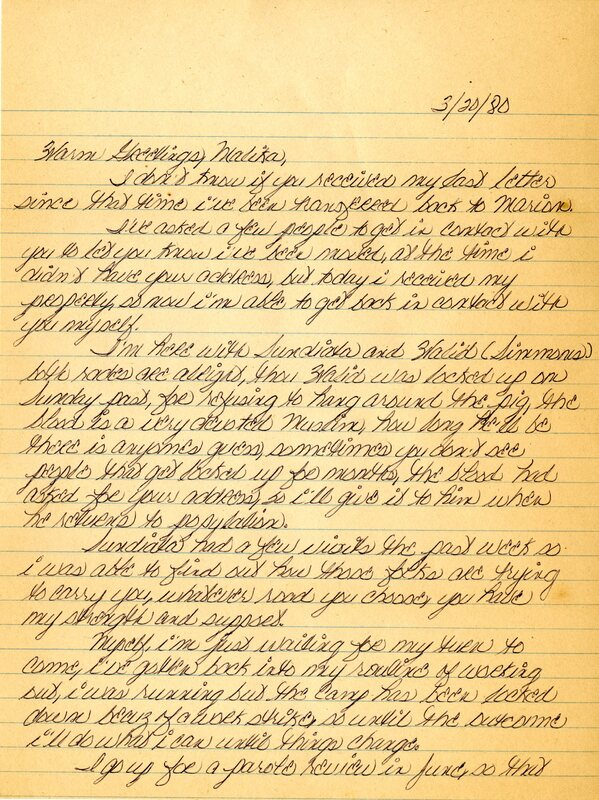 3/20/80
Warm Greetings, Malika,
I don't know if you received my last letter
since that time i've been transfered back to Marion.
I've asked a few people to get in contact with
you to let you know i've been moved, at the time i
didn't have your address, but today i received my
property, so now i'm able to get back in contact with
you myself.
I'm here with Sundiata and Walid (Simmons)
both rades are allright, thou Walid was locked up on
Sunday past, for refusing to hang around the pig, the
blood is a very devoted Muslim, how long he'll be
there is anyones guess, sometimes you don't see
people that get locked up for months, the blood had
asked for your address, so i'll give it to him when
he returns to population.
Sundiata had a few visits the past week so
i was able to find out how those folks are trying
to carry you, whatever road you choose, you have
my strength and support.
Myself, i'm just waiting for my turn to
come, i've gotten back into my routine of working
out, i was running but the camp has been locked
down becuz of a work strike, so until the outcome
i'll do what i can until things change.
I go up for a parole review in June, so that